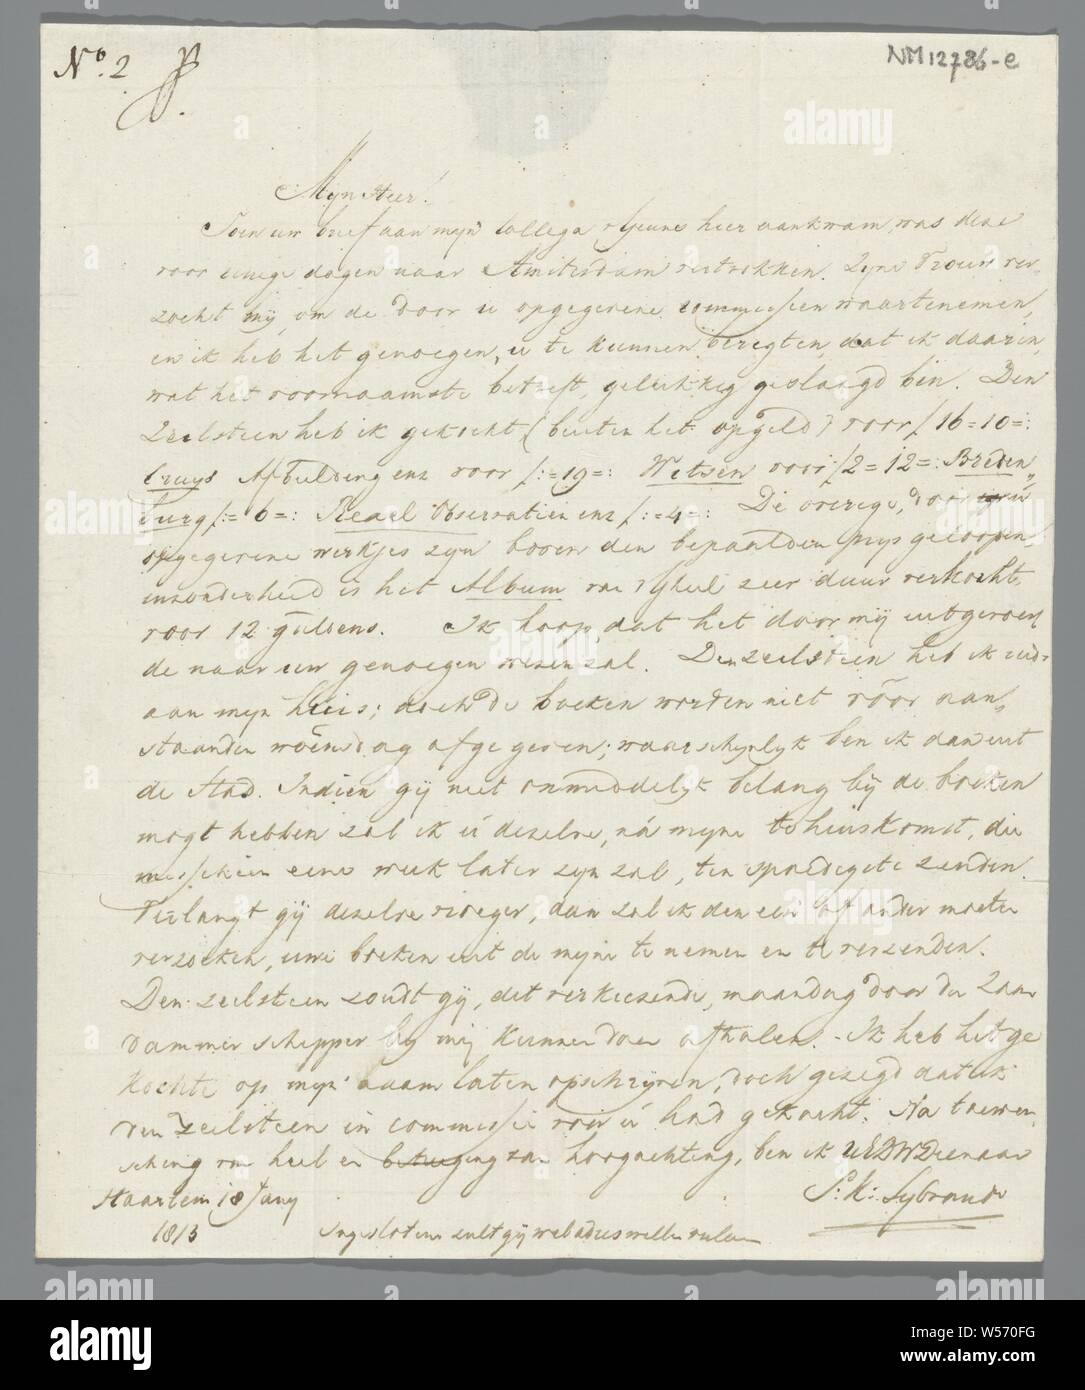 No. 2
NM 12786-e
Mijn Heer!
Toen uw brief aan mijn Collega hier aankwam, was deze
voor eenige dagen naar Amsterdam vertrokken. Zyne Vrouw ver-
zocht mij, om de door u opgegevene commissien waartenemen,
en ik heb het genoegen, u te kunnen berigten, dat ik daarin,
wat het voornaamste betreft, gelukkig geslaagd ben. Den
Zeilsteen heb ik gekocht (buiten het opgeld) voor f 16=10=:
Cruys Afbeelding enz voor f:=19=: Witsen voor f2=12=: Breden
burg f:=6=: Reael Observatien enz f:=4=: De overige, door u
opgegevene werkjes zyn boven den bepaalden prys geloopen,
inzonderheid is het Album zeer duur verkocht
voor 12 guldens. Ik hoop, dat het door mij uitgevoer
de naar uw genoegen wezen zal. Den zeilsteen heb ik reeds
aan mijn huis; doch de boeken worden niet vóór aan-
staanden woensdag afgegeven; waarschynlyk ben ik dan uit
de Stad. Indien gij niet onmiddelyk belang bij de boeken
mogt hebben zal ik u dezelve, ná myne tehuiskomst, die
misschien eene week later zyn zal, ten spoedigste zenden.
Verlangt gij dezelve vroeger, dan zal ik den een of ander moeten
verzoeken, uwe boeken uit de myne te nemen en te verzenden.
Den zeilsteen zoudt gij, dit verkiezende, maandag door den Zaan
dammer schipper by mij kunnen doen afhalen. - Ik heb het ge
kochte op mijn naam laten opschryven, doch gezegd dat ik
den zeilsteen in commissie voor u had gekocht. Na toewen
sching van heil en betuiging van hoogachting, ben ik UEDWDienaar
Haarlem 18 Jany
S: K: Sybrandi
1813
Ingesloten zult gij wel adies willen
alamy
Image ID: W570FG
www.alamy.com